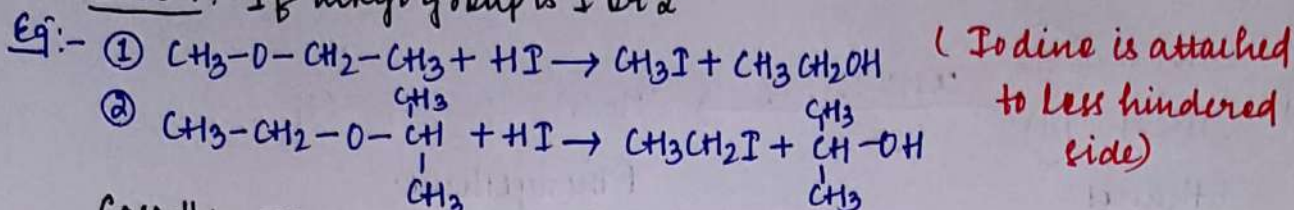 If alkyl group is 1° or 2°
Eg:- ① CH3-O-CH2-CH3 + HI → CH3I + CH3CH2OH ( Iodine is attached
to less hindered
side)
② CH3-CH2-O-CH(CH3)-CH3 + HI → CH3CH2I + CH3-CH(CH3)-OH